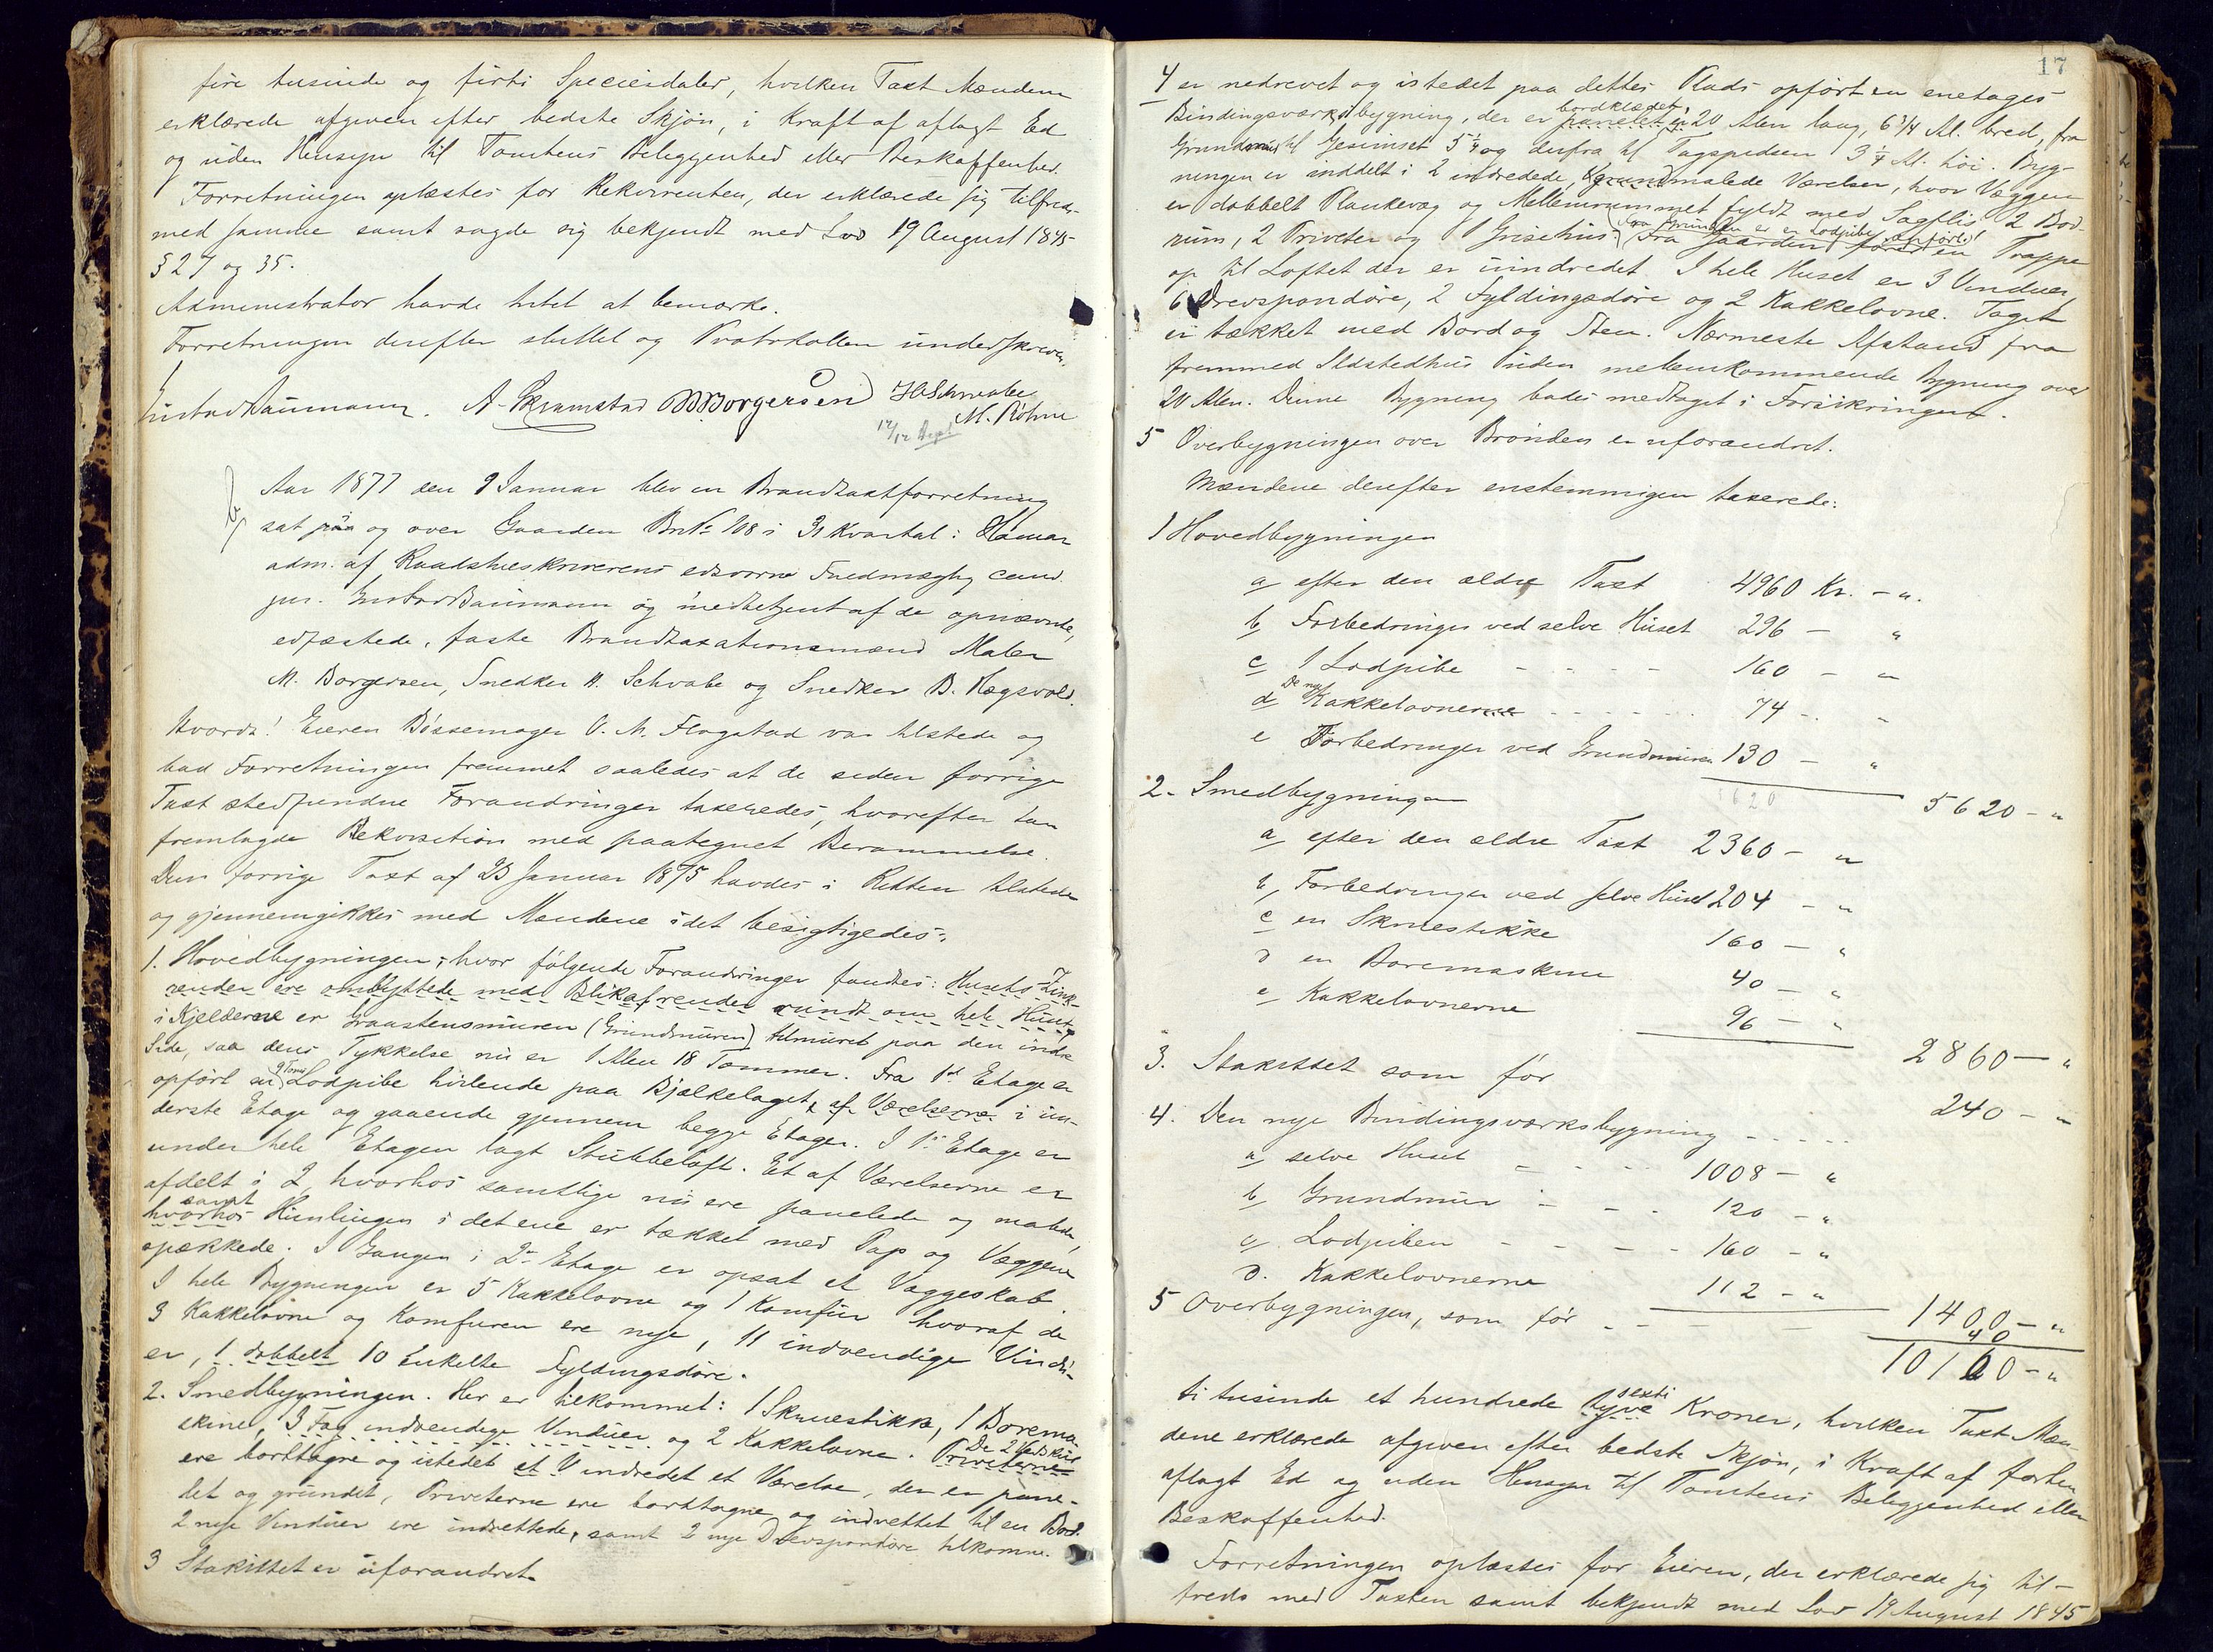 fire tusinde og firti Speciesdaler, hvilken Taxt Mændene
erklærede afgiven efter bedste Skjøn, i Kraft af aflagt Ed
og uden Hensyn til Tomtens Beliggenhed eller Beskaffenhed.
Forretningen oplæstes for Rekvirenten, der erklærede sig tilfreds
med samme samt sagde sig bekjendt med Lov 19 August 1845
§ 27 og 35.
Administrator havde Intet at bemærke.
Forretningen derefter sluttet og Protokollen underskreven.
Gustav Baumann. A. Skramstad M Borgersen H Schwabe
M. Röhne
12/12 Dept
6)
Aar 1877 den 9 Januar blev en Brandtaxtforretning
sat paa og over Gaarden BrNo 108 i 3die Kvartal i Hamar
adm. af Raadstueskriverens edsvorne Fuldmægtig cand.
jur. Gustav Baumann og med betjent af de opnævnte,
edfæstede, faste Brandtaxationsmænd Maler
M. Borgersen, Snedker H. Schvabe og Snedker B. Hagsvold.
Hvorda! Eieren Bössemager O. M. Flagstad var tilstede og
bad Forretningen fremmet saaledes at de siden forrige
Taxt stedfundne Forandringer taxeredes, hvorefter han
fremlagde Rekvisition med paategnet Berammelse.
Den forrige Taxt af 23 Januar 1875 havdes i Retten tilstede
og gjennemgikkes med Mændene idet besigtigedes:
1. Hovedbygningen; hvor følgende Forandringer fandtes: Husets Zink-
render ere ombyttede med Blikafrender rundt om hele Huset,
i Kjelderne er Graastensmuren (Grundmuren) tilmuret paa den indre
Side, saa dens Tykkelse nu er 1 Alen 18 Tommer. Fra 1st Etage er
opført en 9 Toms Lodpibe hvilende paa Bjælkelaget, af Værelserne i un-
derste Etage og gaaende gjennem begge Etager. I 1st Etage er
under hele Etagen lagt Stubbeloft. Et af Værelserne er
afdelt i 2, hvorhos samtlige nu ere panelede og malede,
hvorhos samt Himlingen i det ene er tækket med Pap og Væggene
spækkede. I Gangen i 2den Etage er opsat et Vægge​skab.
I hele Bygningen er 5 Kakkelovne og 1 Komfur hvoraf de
3 Kakkelovne og Komfuren ere nye, 11 indvendige Vindu-
er, 1 dobbelt 10 Enkelte Fyldingsdøre.
2. Smedbygningen. Her er tilkommet: 1 Skruestikke, 1 Borema
skine, 3 Fag indvendige Vinduer og 2 Kakkelovne. Priveterne De 2 Vedskur
ere borttagne og istedet et V indredet et Værelse, der er pane-
let og grundet, Priveterne ere borttagne og indrettet til en Bod.
2 nye Vinduer ere indrettede, samt 2 nye Drevspondøre tilkomne.
3 Stakittet er uforandret.
17
4 er nedrevet og istedet paa dettes Plads opført en enetages
Bindingsværksbygning, der er panelet er bordklædet, 20 Alen lang, 6 3/4 Al. bred, fra
Grundmur til Gesimset 5 1/4 og derfra til Tagspidsen 3 1/4 Al. høi. Byg-
ningen er inddelt i 2 indredede, grundmalede Værelser, hvor Væggen
er dobbelt Plankevæg og Mellemrummet fyldt med Sagflis 2 Bod-
rum, 2 Priveter og 1 Grisehus. Fra Grunden er en Lodpibe opført. Fra Gaarden fører en Trappe
op til Loftet der er uindredet. I hele Huset er 3 Vinduer,
6 Drevspondøre, 2 Fyldingsdøre og 2 Kakkelovne. Taget
er tækket med Bord og Sten. Nærmeste Afstand fra
fremmed Ildstedhus uden mellemkommende Bygning over
20 Alen. Denne Bygning bades medtaget i Forsikringen.
5 Overbygningen over Brønden er uforandret.
Mændene derefter enstemmigen taxerede:
1 Hovedbygningen
a efter den ældre Taxt 4960 Kr. - "
b Forbedringer ved selve Huset 296 - "
c 1 Lodpibe - - - - 160 - "
d De nye Kakkelovnene - - - - 74 - "
e Forbedringer ved Grundmuren 130 - "
5620
5620 - "
2. Smedbygningen
a efter den ældre Taxt 2360 - "
b, Forbedringer ved selve Huset 204 - "
c en Skruestikke 160 - "
d en Boremaskine 40 - "
e Kakkelovnerne 96 - "
2860 - "
3. Stakittet som før 240 - "
4. Den nye Bindingsværksbygning - - - - -
a, selve Huset - - - 1008 - "
b Grundmur - - - 120 - "
c, Lodpiben - - - - 160 - "
d. Kakkelovnerne 112 - "
1400 - "
5 Overbygningen, som før - - - 40
10160 - "
ti tusinde et hundrede tyve sexti Kroner, hvilken Taxt Mæn-
dene erklærede afgiven efter bedste Skjøn, i Kraft af forhen
aflagt Ed og uden Hensyn til Tomtens Beliggenhed eller
Beskaffenhed.
Forretningen oplæstes for Eieren, der erklærede sig til-
freds med Taxten samt bekjendt med Lov 19 August 1845